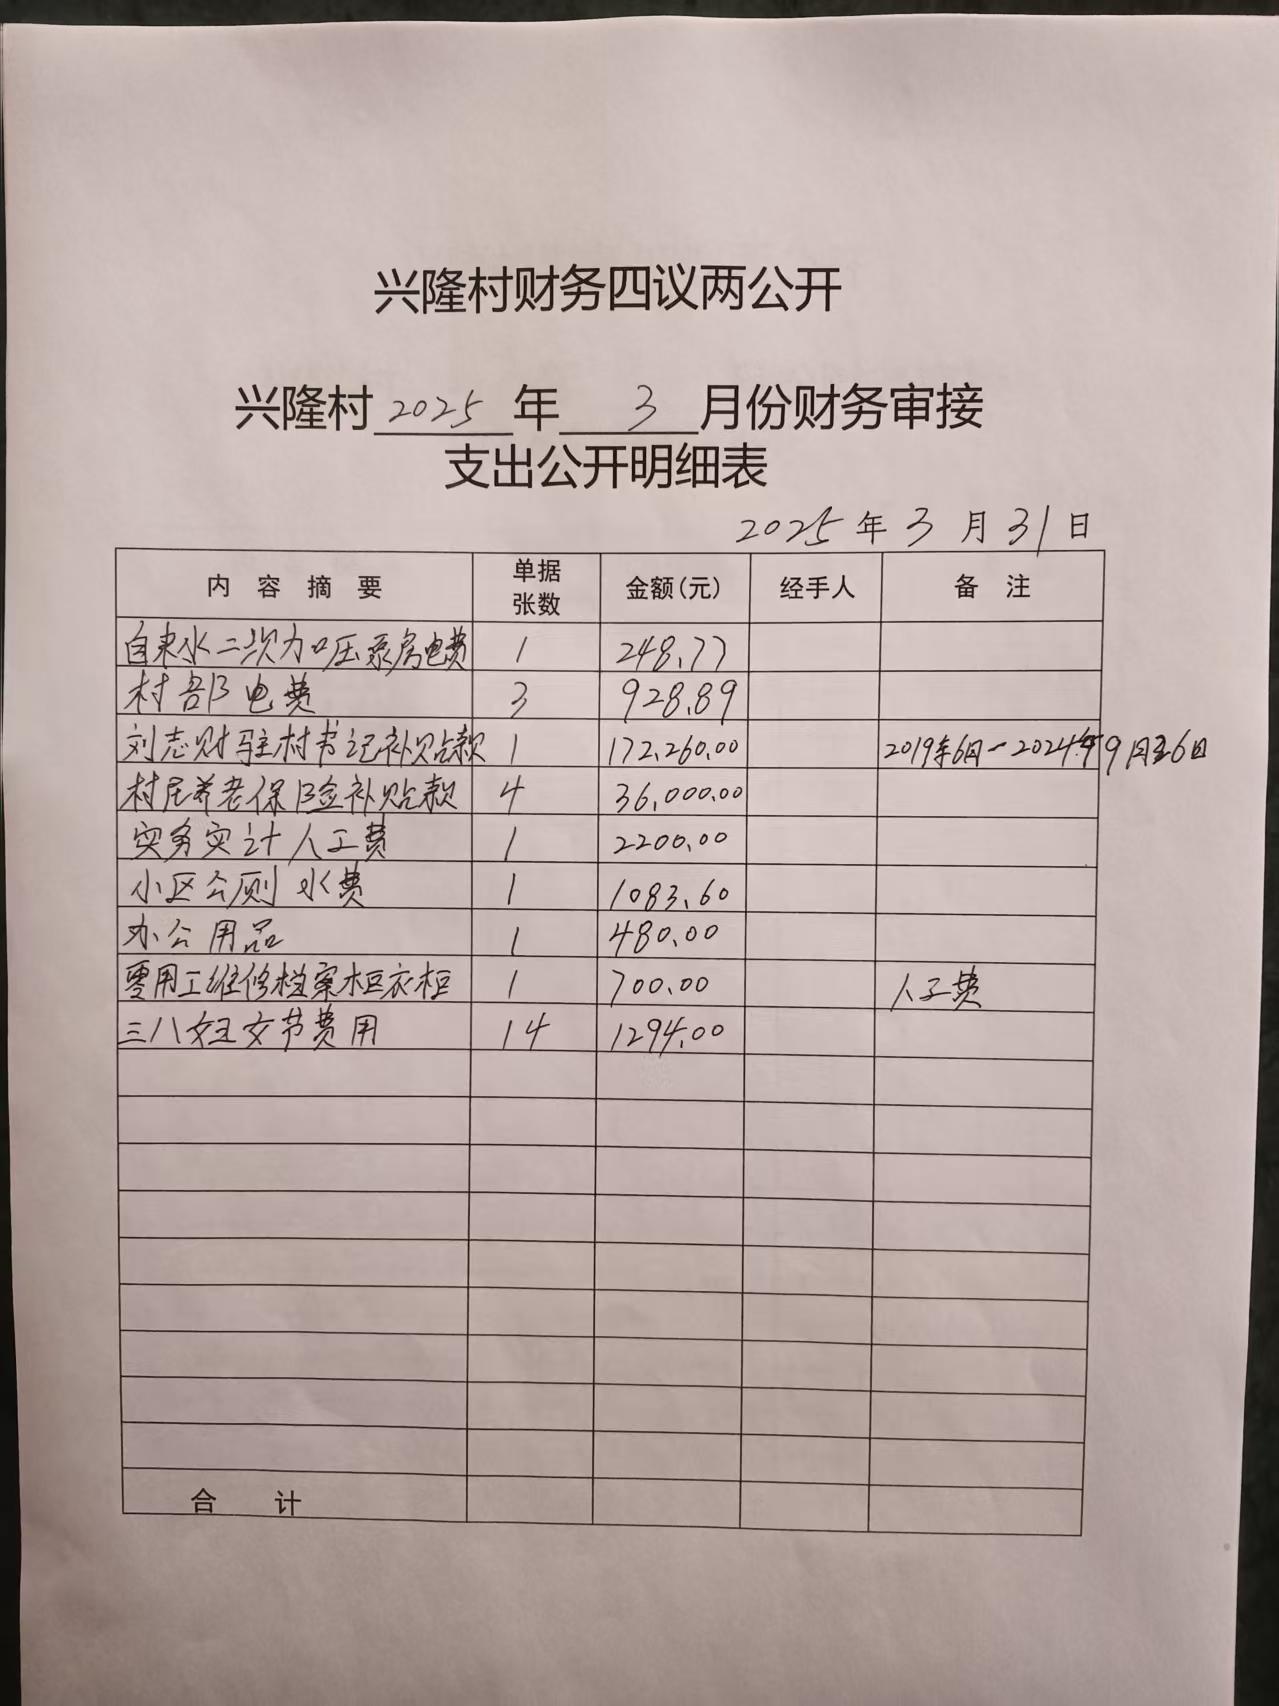 兴隆村财务四议两公开
兴隆村 2025 年 3 月份财务审接
支出公开明细表
2025年3月31日
内容摘要 单据张数 金额(元) 经手人 备注
自来水二次加压泵房电费 1 248.77
村部电费 3 928.89
刘志财驻村书记补贴款 1 172,260.00 2019年6月-2024年9月至6日
村民养老保险补贴款 4 36,000.00
实务实计人工费 1 2200.00
小区公厕水费 1 1083.60
办公用品 1 480.00
零用工维修档案柜衣柜 1 700.00 人工费
三八妇女节费用 14 1294.00
合计